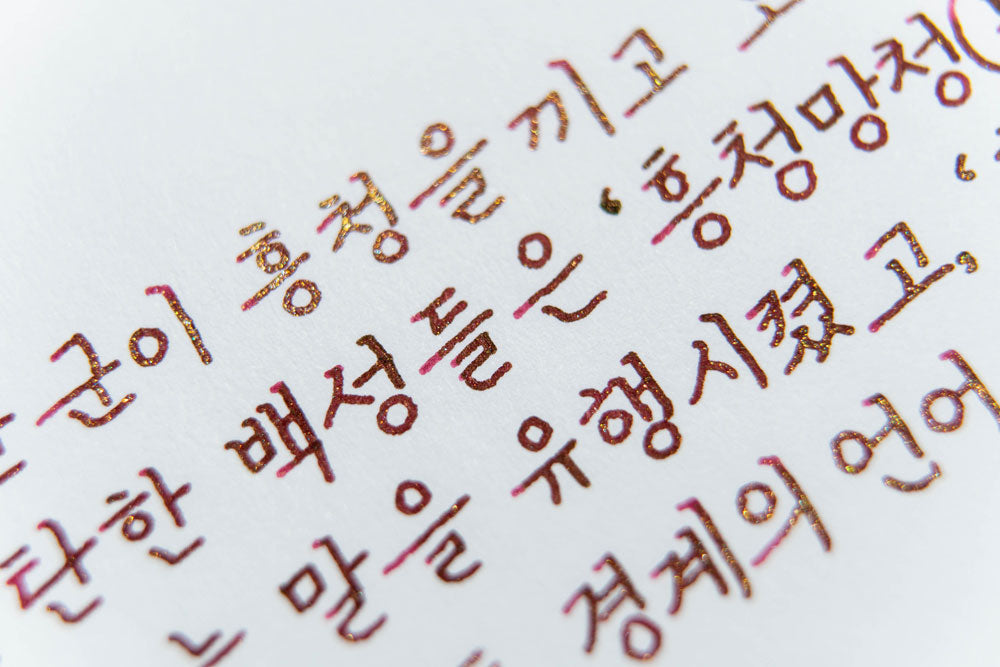 군이 흥청을 끼고
탄한 백성들은 ‘흥청망청(
는 말을 유행시켰고, ‘
경계의 언어